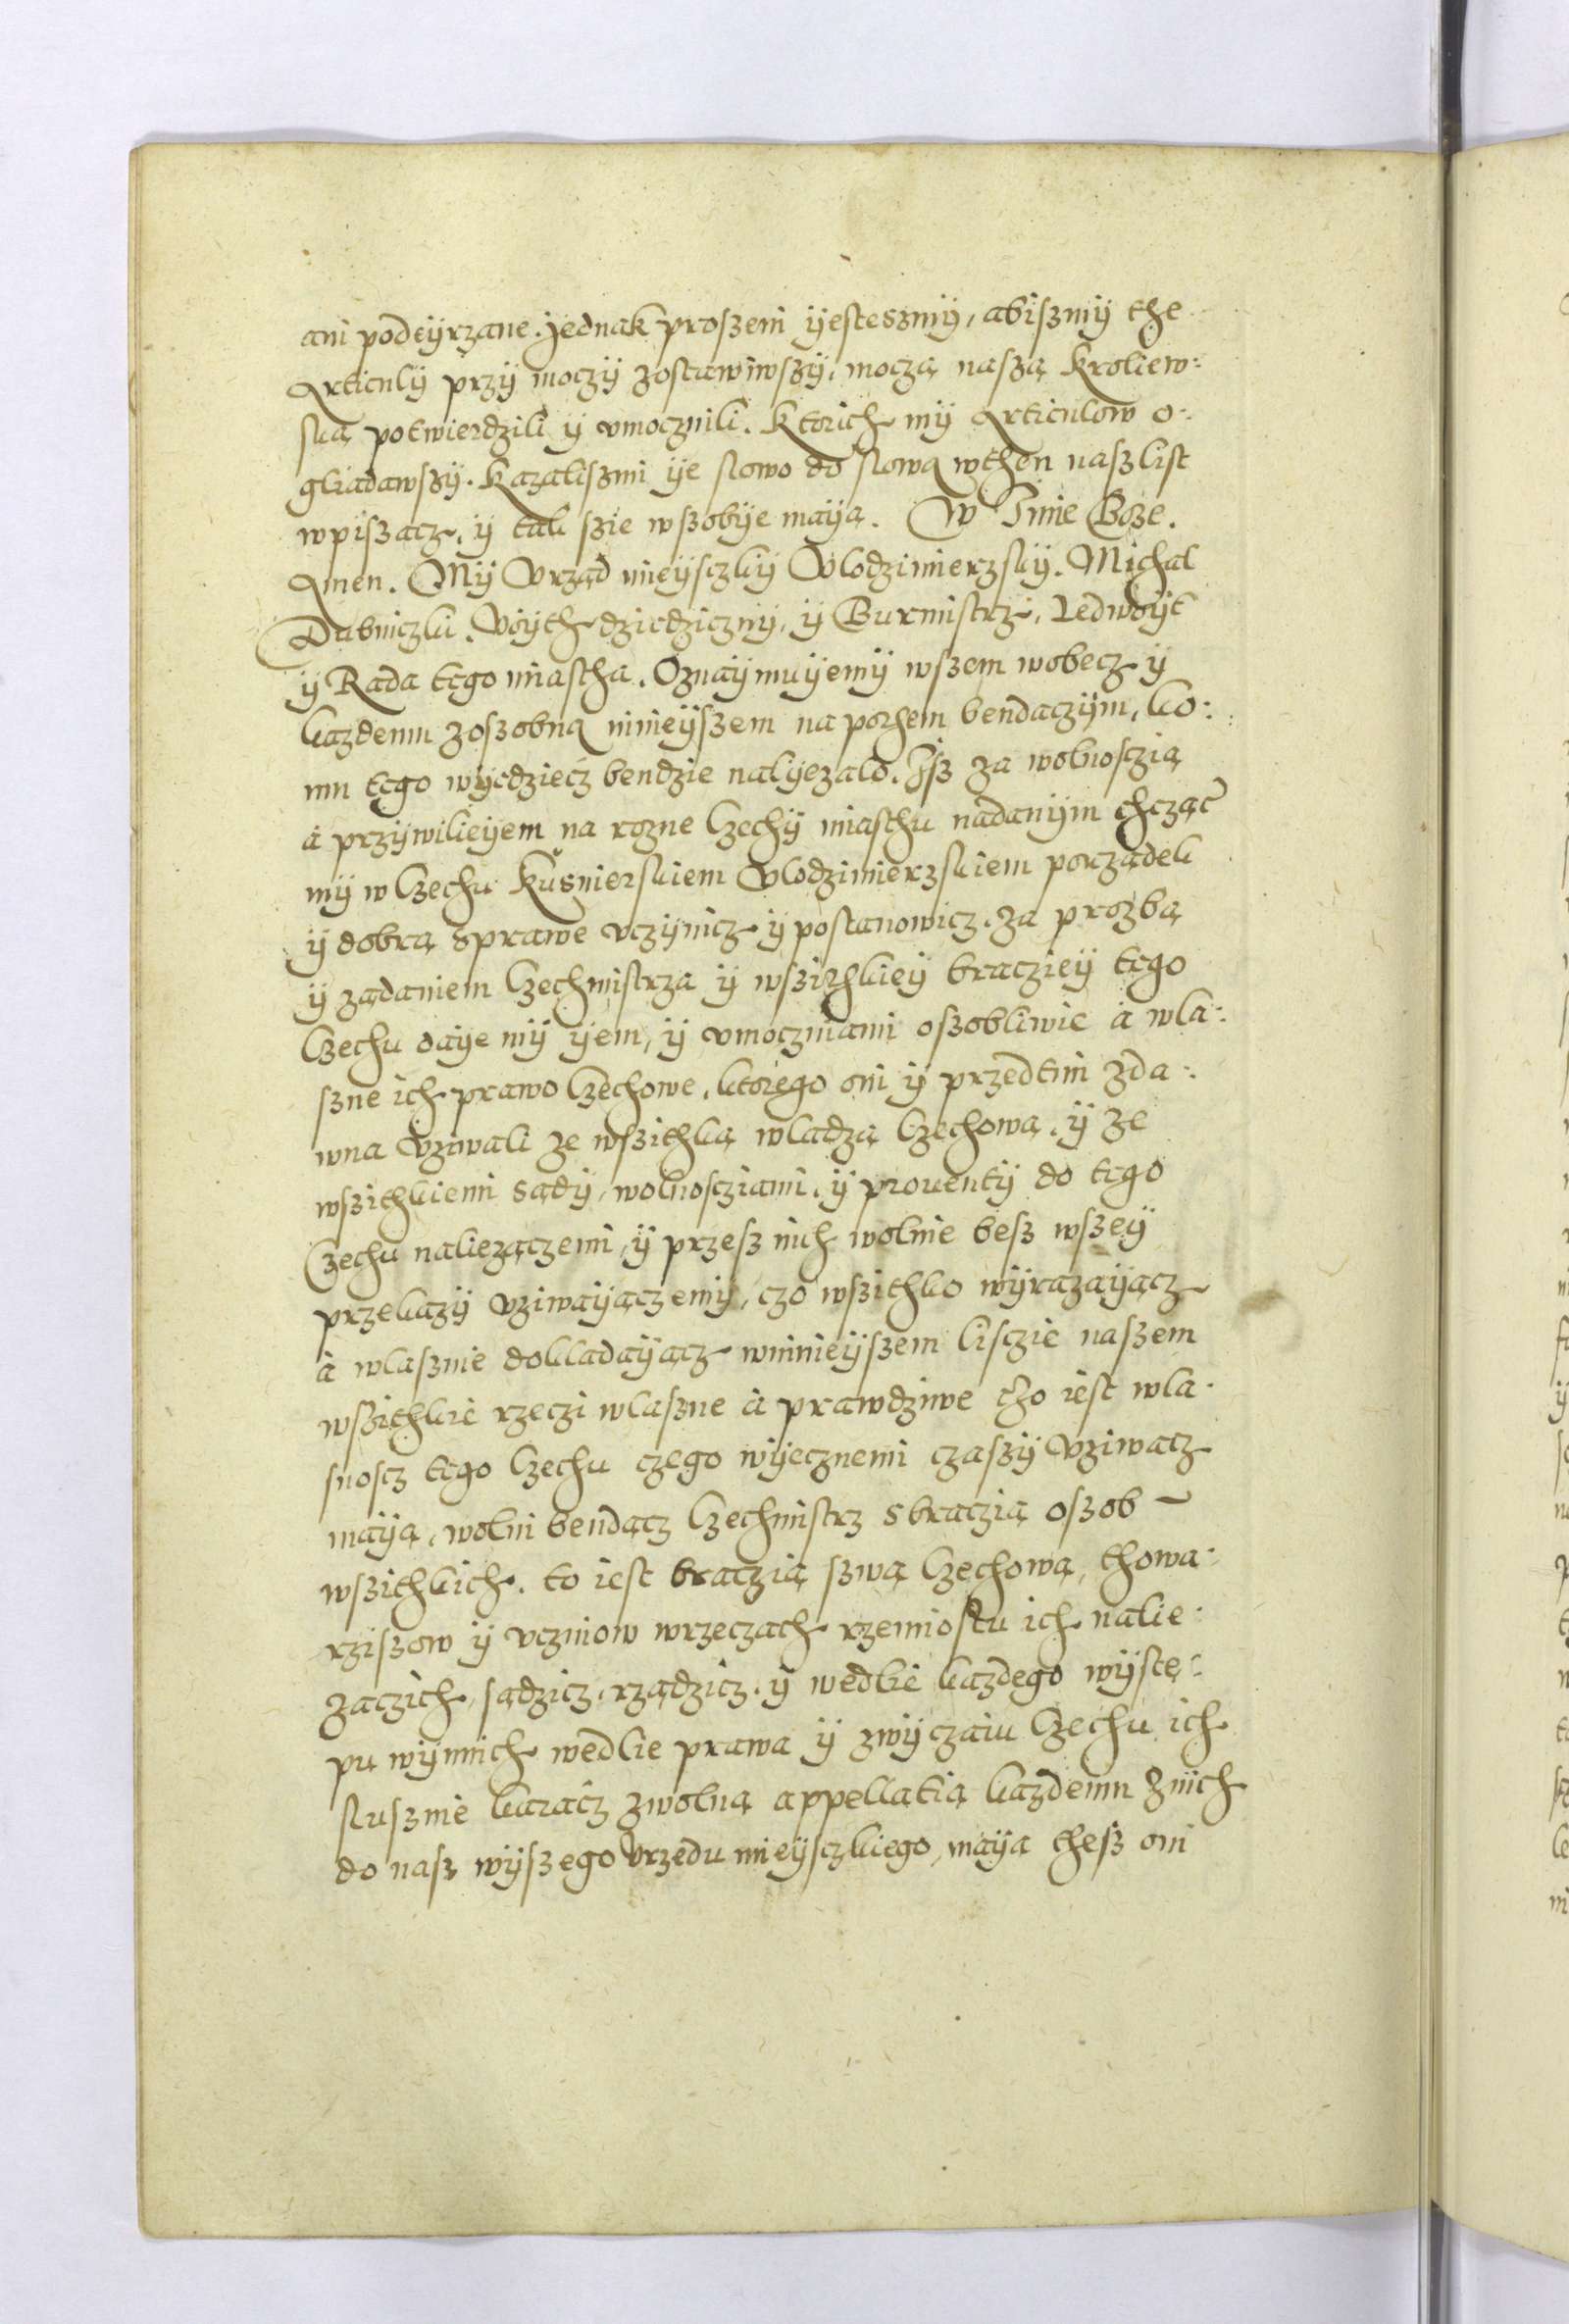 ani podeÿrzane. Jednak proszeni ÿesteszmÿ, abiszmÿ the
Articulÿ przÿ moczÿ zostawiwszÿ, moczą naszą Kroliew:
ską potwierdzili ÿ vmocznili. Ktorich mÿ Articulow o:
gliadawszÿ. Kazaliszmi ÿe slowo do slowa wthen nasz list
wpiszacz, ÿ tak szie wszobÿe maÿą. W Imie Boze.
Amen. Mÿ Vrząd mieÿsczkÿ Wlodzimierzskÿ. Michal
Dubniczki. Woÿth dziedzicznÿ, ÿ Burmistrz, Ledwoÿt
ÿ Rada tego miastha. Oznaÿmuÿemÿ wszem wobecz ÿ
kazdemu zoszobna ninieÿszem na pothem bendaczÿm, ko:
mu tego wÿedziecz bendzie nalÿezalo. Isz za wolnosczią
à przÿwilieÿem na rozne Czechÿ miasthu nadanÿm chcząc
mÿ w Czechu Kusnierskiem Wlodzimierzskiem porządek
ÿ dobrą sprawe vczÿnicz ÿ postanowicz, za prozbą
ÿ ządaniem Czechmistrza ÿ wszithkieÿ bracziey tego
Czechu daÿe mÿ ÿem, ÿ vmoczniami oszobliwie à wla:
szne ich prawo Czechowe, ktorego oni ÿ przedtim zda:
wna vziwali ze wszithką wladzą Czechową, ÿ ze
wszithkiemi sądÿ, wolnoscziami, ÿ prouentÿ do tego
Czechu naliezączemi, ÿ przesz nich wolnie besz wszeÿ
przekazÿ vziwaÿączemÿ, czo wszithko wÿrazaÿącz
à wlasznie dokladaÿącz wninieÿszem lisczie naszem
wszithkie rzeczi wlaszne à prawdziwe czo iest wla:
snoscz tego Czechu czego wÿecznemi czaszÿ vziwacz
maÿą, wolni bendącz Czechmistrz s braczią oszob
wszithkich. to iest braczią szwą Czechową, thowa:
rziszow ÿ vczniow wrzeczach rzemiostu ich nalie:
zaczich, sądzicz, rządzicz, ÿ wedlie kazdego wÿstę:
pu wÿnnich wedlie prawa ÿ zwÿczaiu Czechu ich
slusznie karacz zwolną appellatią kazdemu znich
do nasz wÿszego Vrzędu mieÿsczkiego, maÿą thesz oni